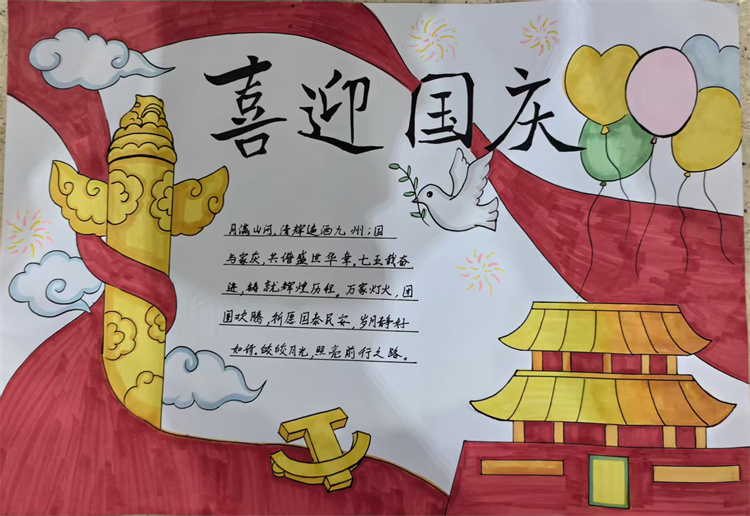 喜迎国庆
月满山河，清辉遍洒九州；国
与家庆，共谱盛世华章。七五载奋
进，铸就辉煌历程。万家灯火，团
国欢腾，祈愿国泰民安，岁月静好
如你。皎皎月光，照亮前行之路。